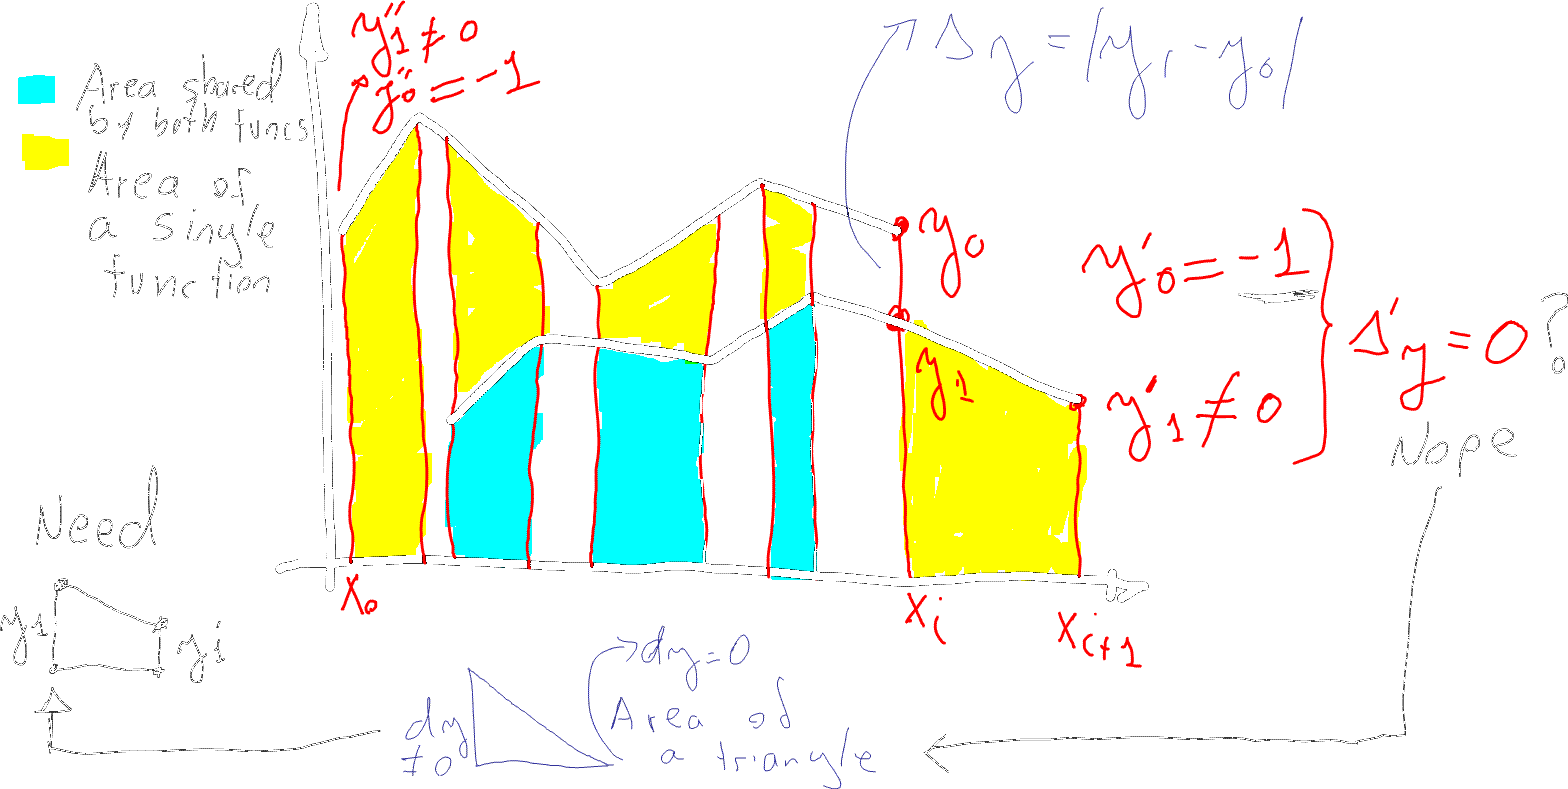 Area shared
by both funcs
Area of
a single
function
y₁'' ≠ 0
y₀'' = -1
Δy = |y₁ - y₀|
y₀
y₁
y₀' = -1
y₁' ≠ 0
Δ'y = 0 ?
Nope
x₀
xᵢ
xᵢ₊₁
Need
y₁
y₁'
dy
≠0
dy=0
Area of
a triangle